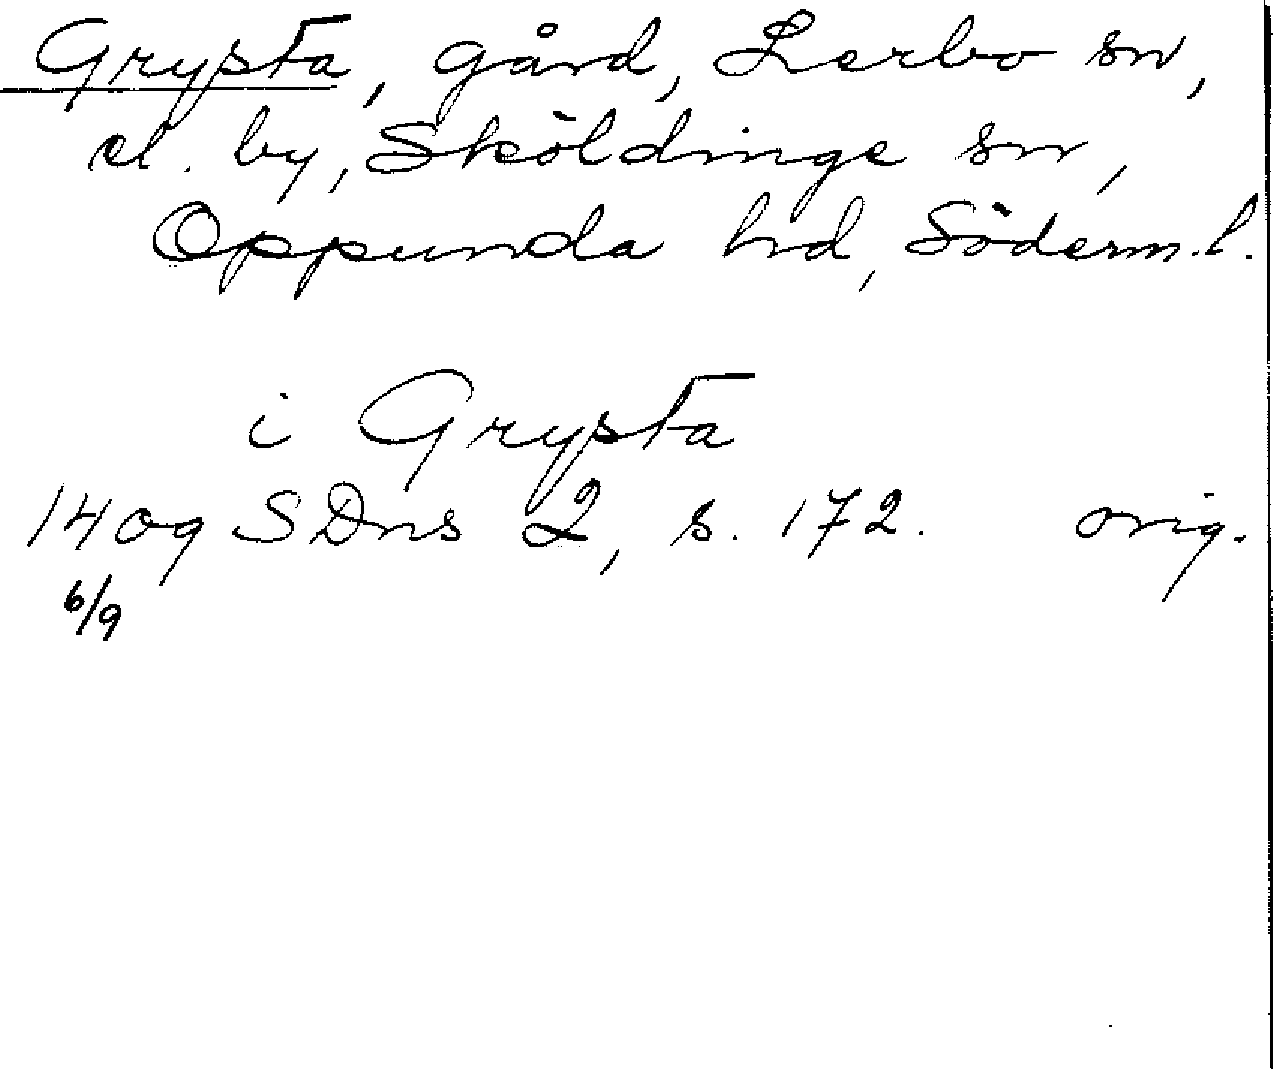 Grypsta, gård, Lerbo sn,
el. by, Sköldinge sn,
Oppunda hd, Söderm.l.
i Grypsta
1409 SDns 2, s. 172. orig.
6/9